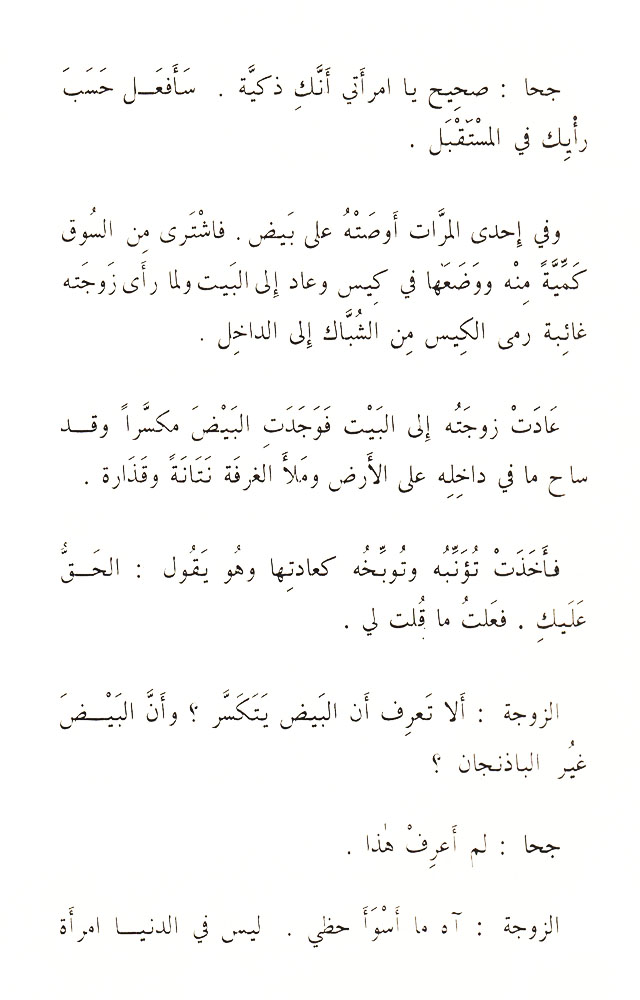 جحا : صحِيح يا امرأَتي أَنَّكِ ذكيَّة . سَأَفعَـل حَسَبَ
رأْيِك في المسْتَقْبَل .
وفي إِحدى المرَّات أَوصَتْهُ على بَيض . فاشْتَرى مِن السُوق
كَمِّيَّةً مِنْه ووَضَعَها في كِيس وعاد إِلى البَيت ولما رأَى زَوجَته
غائِبة رمى الكِيس مِن الشُبَّاك إِلى الداخِل .
عَادَتْ زوجَتُه إِلى البَيْت فَوَجَدَتِ البَيْضَ مكسَّراً وقـد
ساح ما في داخِلِه على الأَرض ومَلأَ الغرفَة نَتَانَةً وقَذَارة .
فأَخَذَتْ تُؤنِّبُه وتُوبِّخُه كعادتِها وهُو يَقُول : الحَـقُّ
عَلَيكِ . فعَلتُ ما قُلت لي .
الزوجة : أَلا تَعرِف أَن البَيض يَتَكَسَّر ؟ وأَنَّ البَيْـضَ
غيُر الباذنجان ؟
جحا : لم أَعرِفْ هٰذا .
الزوجة : آه ما أَسْوَأَ حظي . ليس في الدنيـا امرأَة